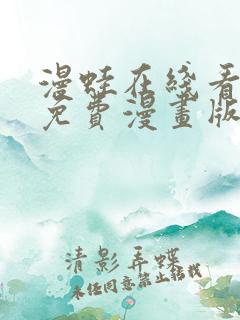 漫蛙在线看
免費漫畫版
清影弄蝶
未经同意禁止转载